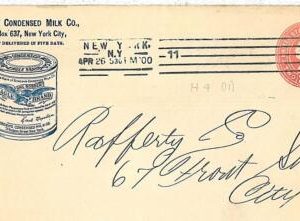 CONDENSED MILK CO.,
Box 637, New York City,
DELIVERED IN FIVE DAYS.
NEW YORK.
N.Y.
APR 26 530 PM '00
11
H 4 00
BRAND
Rafferty Co
67 Front
City